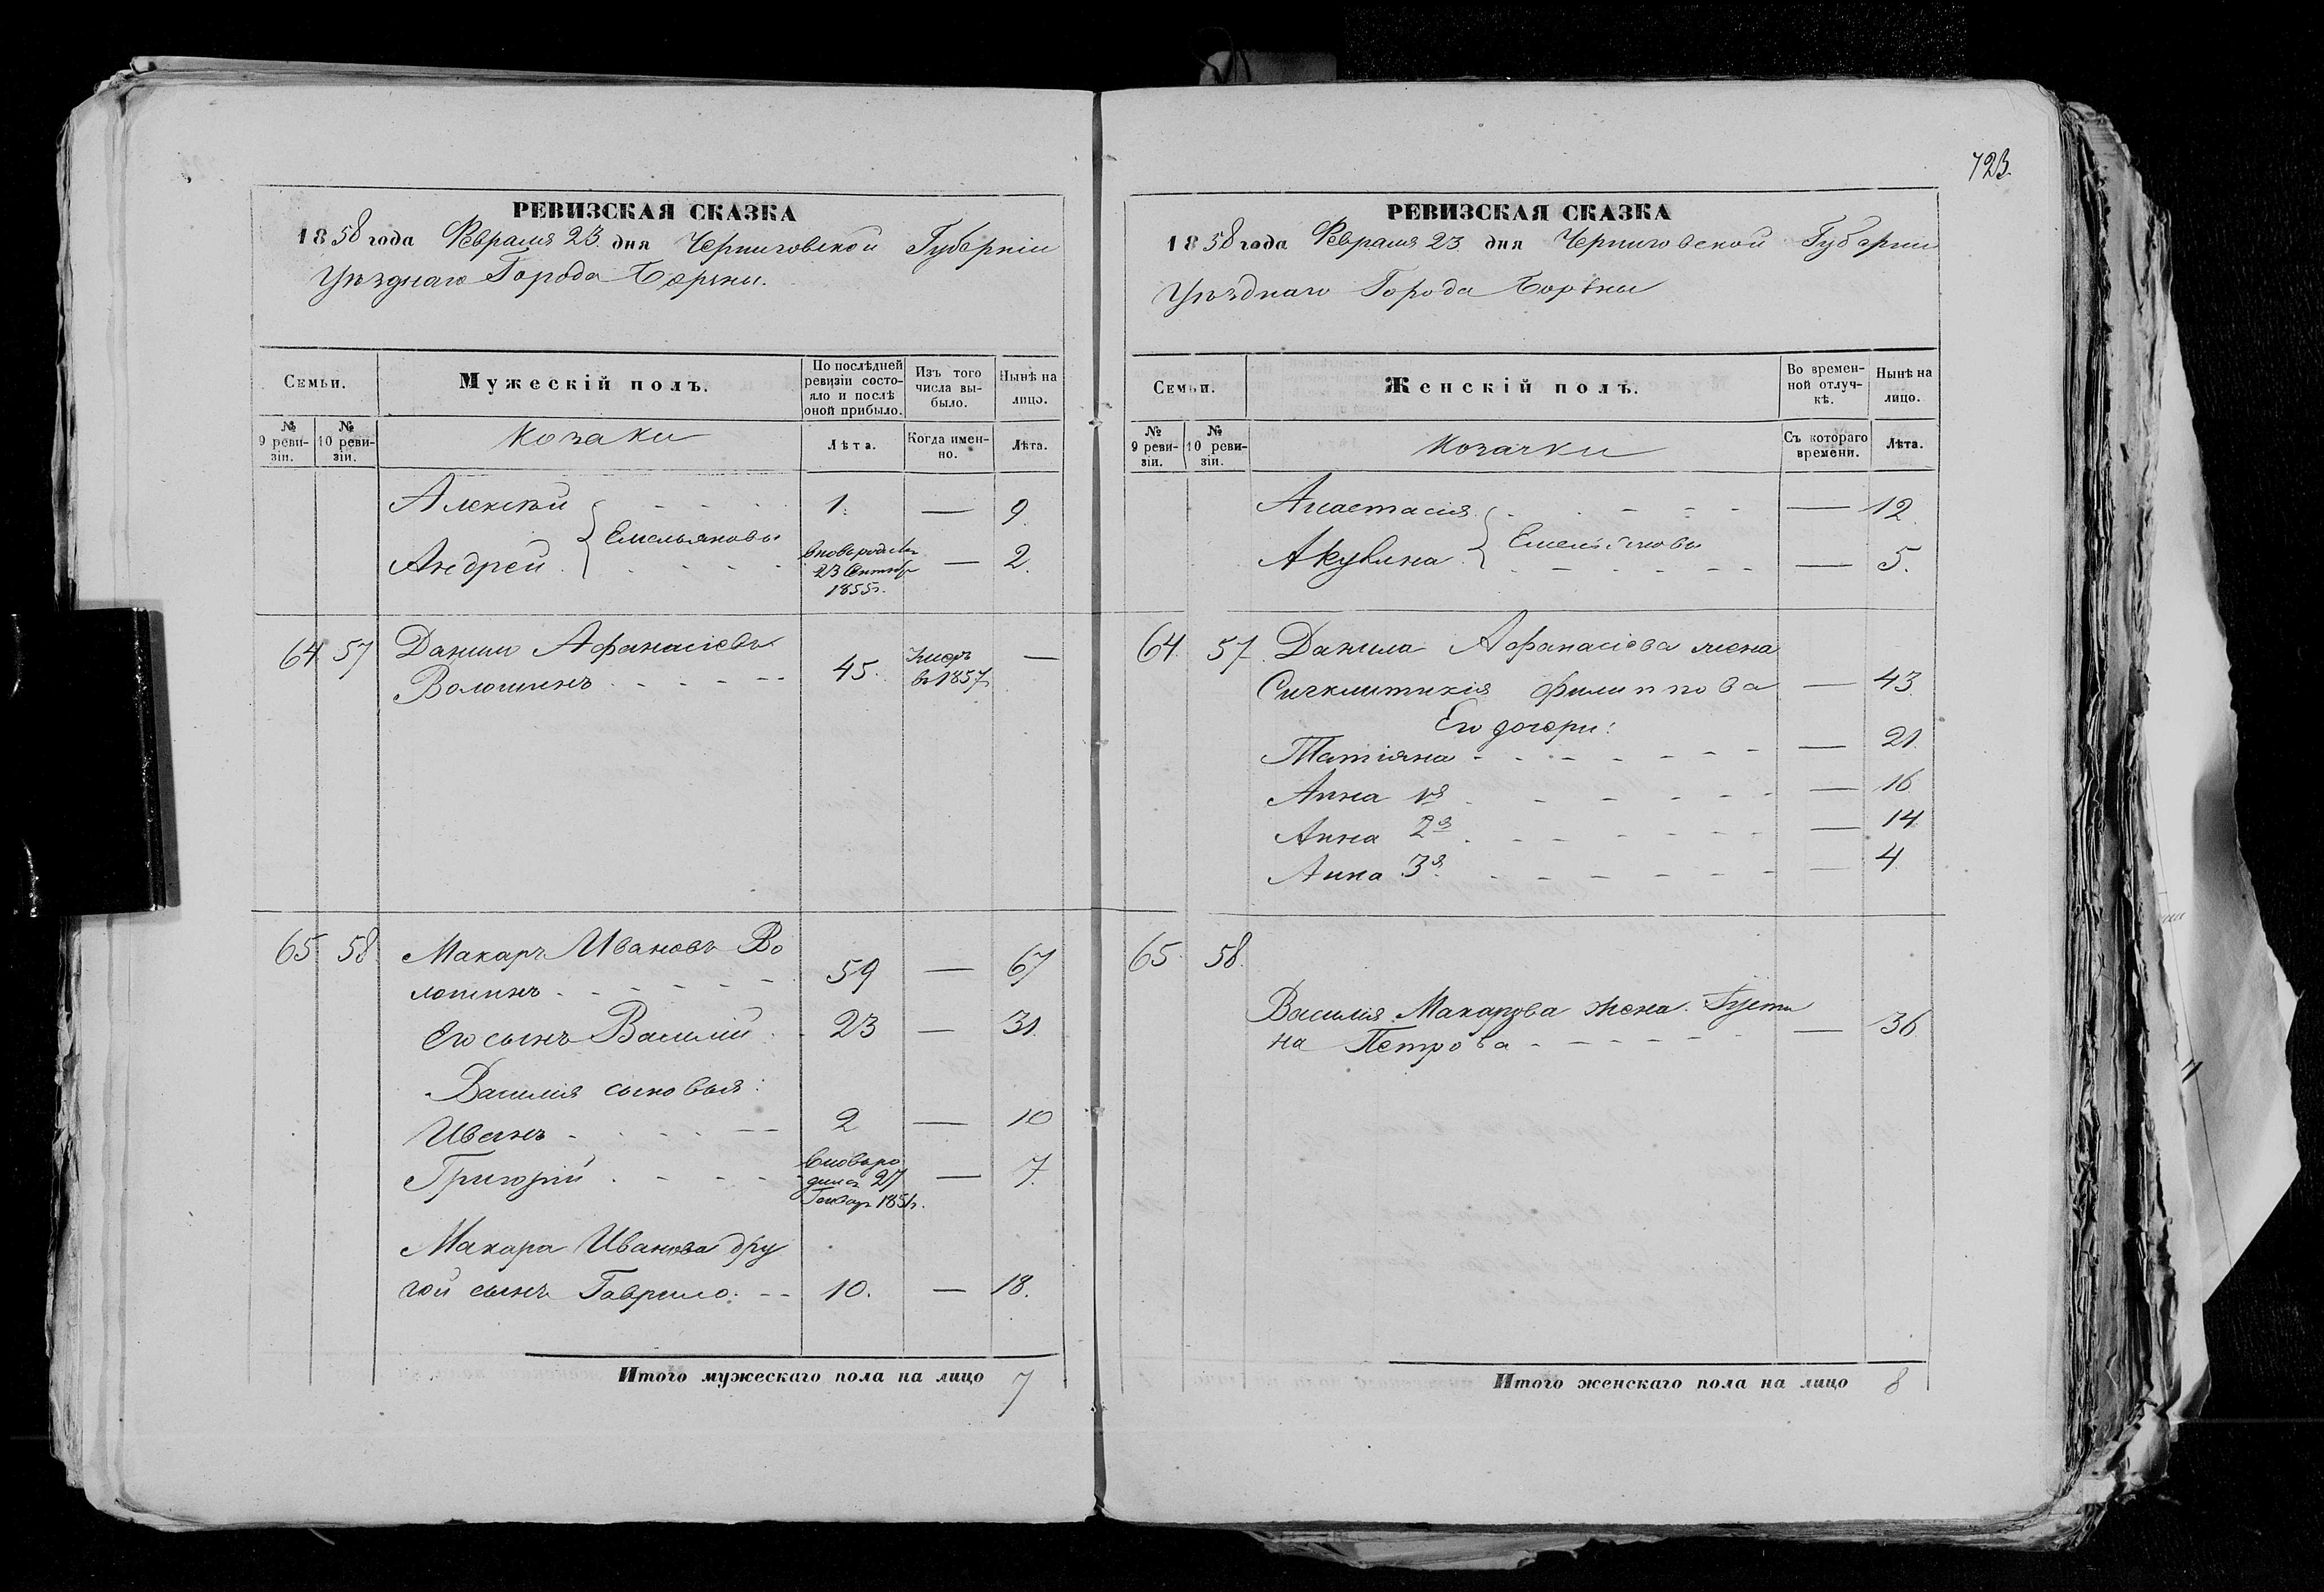 723.
РЕВИЗСКАЯ СКАЗКА
1858 года Февраля 23 дня Черниговской Губерніи
Уѣзднаго Города Борзны.
Семьи.
Мужескій полъ.
По послѣдней ревизіи состояло и послѣ оной прибыло.
Изъ того числа выбыло.
Нынѣ на лицо.
№ 9 ревизіи.
№ 10 ревизіи.
Козаки
Лѣта.
Когда именно.
Лѣта.
Алексѣй 1. — 9.
Емельяновы
Андрей вновь родилс 23 Сентябр 1855г. — 2.
64 57 Данило Афанасіевъ
Волошинъ 45. умеръ въ 1857г —
65 58 Макаръ Ивановъ Во
лошинъ 59 — 67
Его сынъ Василій 23 — 31.
Василія сыновья:
Иванъ 2 — 10
Григорій вновь родился 27 Генвар 1851г. — 7.
Макара Иванова дру
гой сынъ Гаврило. 10. — 18.
Итого мужескаго пола на лицо 7
РЕВИЗСКАЯ СКАЗКА
1858 года Февраля 23 дня Черниговской Губерніи
Уѣзднаго Города Борзны
Семьи.
Женскій полъ.
Во временной отлучкѣ.
Нынѣ на лицо.
№ 9 ревизіи.
№ 10 ревизіи.
Козачки
Съ котораго времени.
Лѣта.
Анастасія — 12.
Емельяновы
Акулина — 5.
64. 57. Данила Афанасіева жена
Филиппова — 43.
Его дочери:
Татіяна — 21.
Анна 1я — 16
Анна 2я — 14
Анна 3я — 4
65. 58.
Василія Макарова жена
на Петрова — 36
Итого женскаго пола на лицо 8